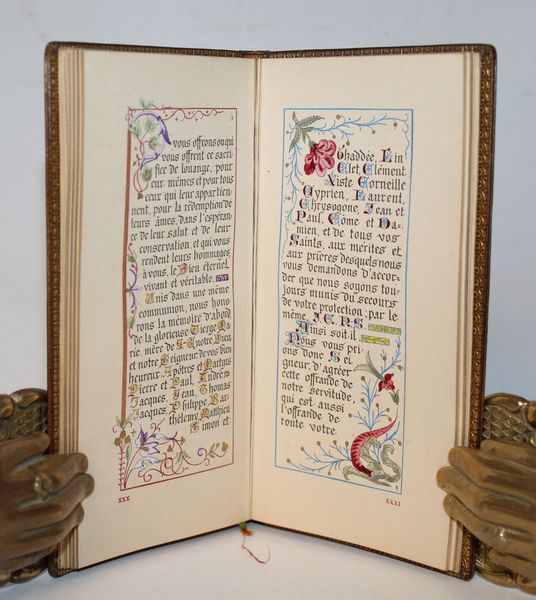 vous offrons ou qui
vous offrent ce sacri-
fice de louange, pour
eux-mêmes et pour tous
ceux qui leur appartien-
nent, pour la rédemption de
leurs âmes, dans l'espéran-
ce de leur salut et de leur
conservation, et qui vous
rendent leurs hommages,
à vous, le Dieu éternel,
vivant et véritable.
Unis dans une même
communion, nous hono-
rons la mémoire d'abord
de la glorieuse Vierge Ma-
rie, mère de J.-C. notre Dieu
et notre Seigneur, de vos bien-
heureux Apôtres et Martyrs
Pierre et Paul, André,
Jacques, Jean, Thomas
Jacques, Philippe, Bar-
thélemy, Matthieu
Simon et
XXX
Thaddée, Lin
Clet, Clément
Xiste, Corneille
Cyprien, Laurent,
Chrysogone, Jean et
Paul, Côme et Da-
mien, et de tous vos
Saints, aux mérites et
aux prières desquels nous
vous demandons d'accor-
der que nous soyons tou-
jours munis du secours
de votre protection; par le
même J.C.N.S.
Ainsi soit-il.
Nous vous pri-
ons donc Sei-
gneur, d'agréer
cette offrande de
notre servitude,
qui est aussi
l'offrande de
toute votre
XXXI